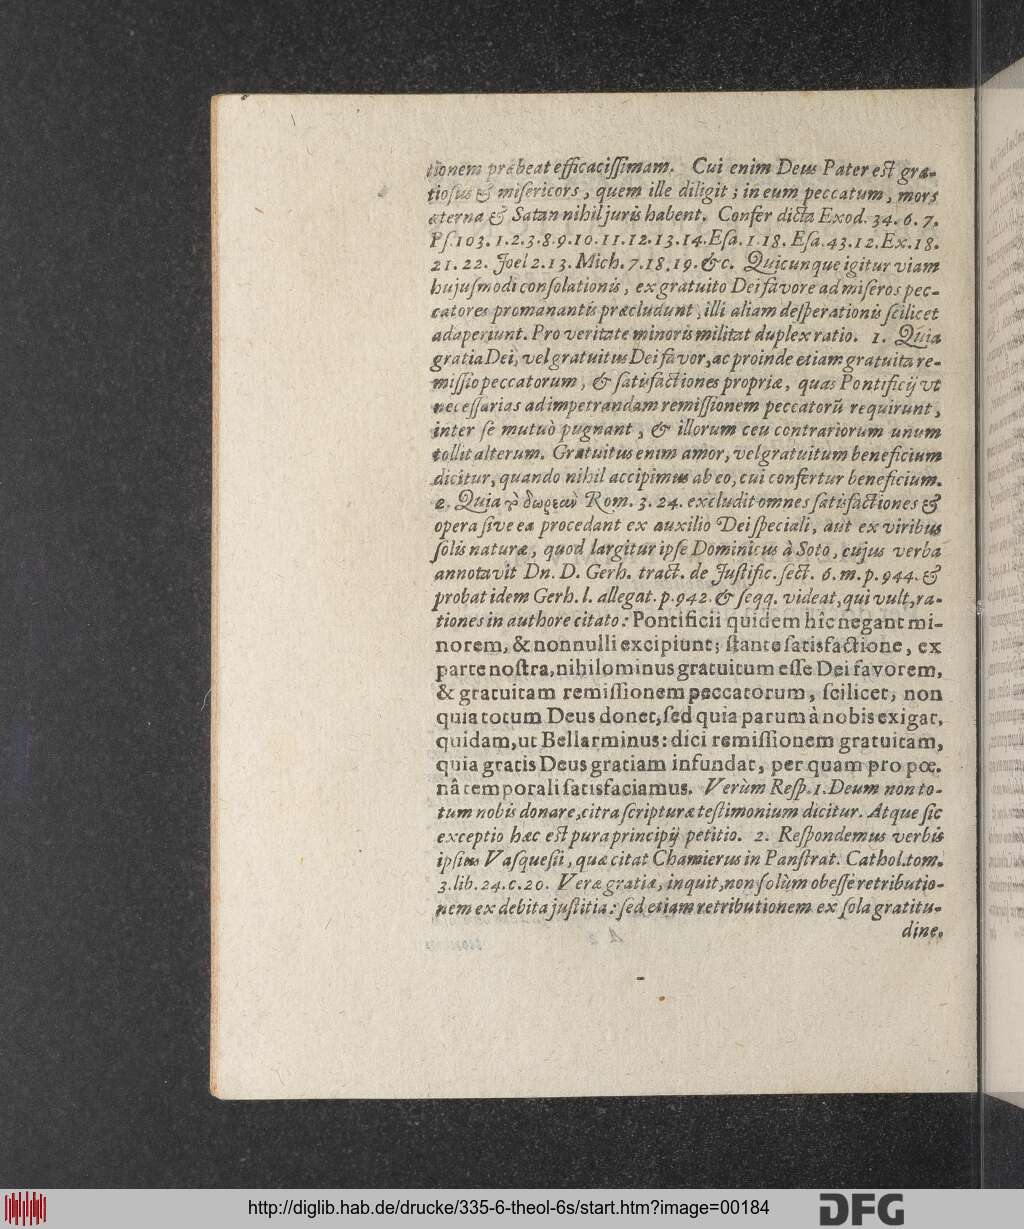 tionem præbeat efficacissimam. Cui enim Deus Pater est gra-
tiosus & misericors, quem ille diligit; in eum peccatum, mors
æterna & Satan nihil juris habent. Confer dicta Exod. 34. 6. 7.
Ps. 103. 1. 2. 3. 8. 9. 10. 11. 12. 13. 14. Esa. 1. 18. Esa. 43. 12. Ex. 18.
21. 22. Joel 2. 13. Mich. 7. 18. 19. &c. Quicunque igitur viam
hujusmodi consolationis, ex gratuito Dei favore ad miseros pec-
catores promanantis præcludunt, illi aliam desperationis scilicet
adaperiunt. Pro veritate minoris militat duplex ratio. 1. Quia
gratia Dei, vel gratuitus Dei favor, ac proinde etiam gratuita re-
missio peccatorum, & satisfactiones propriæ, quas Pontificij vt
necessarias ad impetrandam remissionem peccatorū requirunt,
inter se mutuò pugnant, & illorum ceu contrariorum unum
tollit alterum. Gratuitus enim amor, vel gratuitum beneficium
dicitur, quando nihil accipimus ab eo, cui confertur beneficium.
2. Quia τὸ δωρεὰν Rom. 3. 24. excludit omnes satisfactiones &
opera sive ea procedant ex auxilio Dei speciali, aut ex viribus
solis naturæ, quod largitur ipse Dominicus à Soto, cujus verba
annotavit Dn. D. Gerh. tract. de Justific. sect. 6. m. p. 944. &
probat idem Gerh. l. allegat. p. 942. & seqq. videat, qui vult, ra-
tiones in authore citato: Pontificii quidem hîc negant mi-
norem, & nonnulli excipiunt; stante satisfactione, ex
parte nostra, nihilominus gratuitum esse Dei favorem,
& gratuitam remissionem peccatorum, scilicet, non
quia totum Deus donet, sed quia parum à nobis exigat,
quidam, ut Bellarminus: dici remissionem gratuitam,
quia gratis Deus gratiam infundat, per quam pro pœ-
nâ temporali satisfaciamus. Verùm Resp. 1. Deum non to-
tum nobis donare, citra scripturæ testimonium dicitur. Atque sic
exceptio hæc est pura principij petitio. 2. Respondemus verbis
ipsius Vasquesii, quæ citat Chamierus in Panstrat. Cathol. tom.
3. lib. 24. c. 20. Veræ gratiæ, inquit, non solùm obesse retributio-
nem ex debita justitia: sed etiam retributionem ex sola gratitu-
dine.
http://diglib.hab.de/drucke/335-6-theol-6s/start.htm?image=00184
DFG